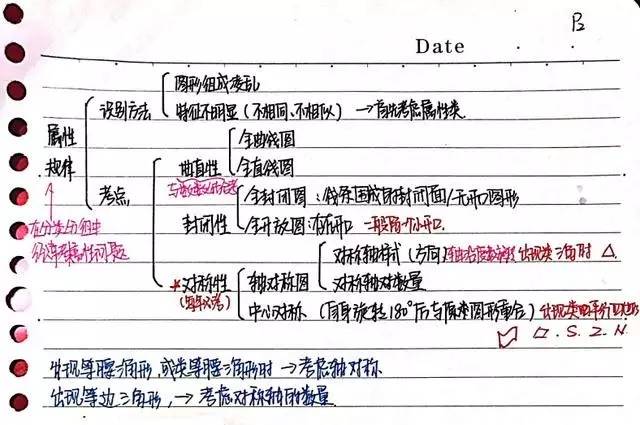 P2
Date
图形组成凌乱
识别方法
特征不明显(不相同、不相似) →首先考虑属性类
属性
规律
全曲线图
曲直性
全直线图
考点
全封闭图:线条围成的封闭面/无开口图形
封闭性
全开放图:有开口 一般留一个小开口.
对称轴样式(方向) 出现类三角时 △
轴对称图
对称轴数量
*对称性
(每年必考)
中心对称 (自身旋转180°后与原来图形重合)
▱.S.Z.N.
出现等腰三角形,或类等腰三角形时→考虑轴对称
出现等边三角形,→考虑对称轴的数量